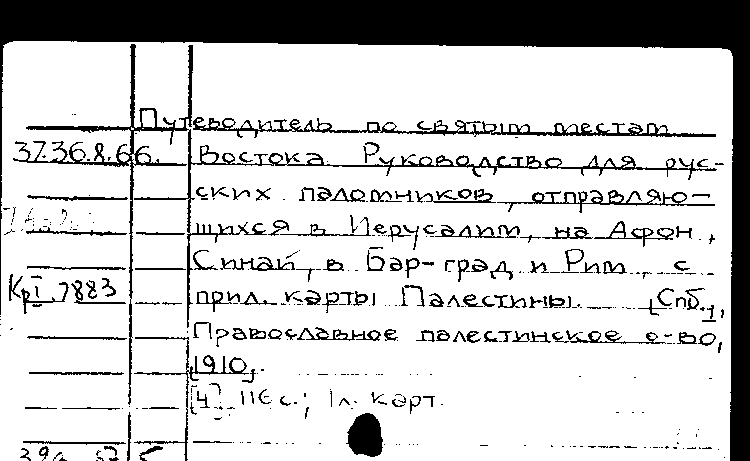 Путеводитель по святым местам
37.36.8.66. Востока. Руководство для рус-
ских паломников, отправляю-
щихся в Иерусалим, на Афон,
Синай, в Бар-град и Рим, с
КрI.7883 прил. карты Палестины. [Спб.],
Православное палестинское о-во,
[1910].
[4], 116 с.; 1л. карт.